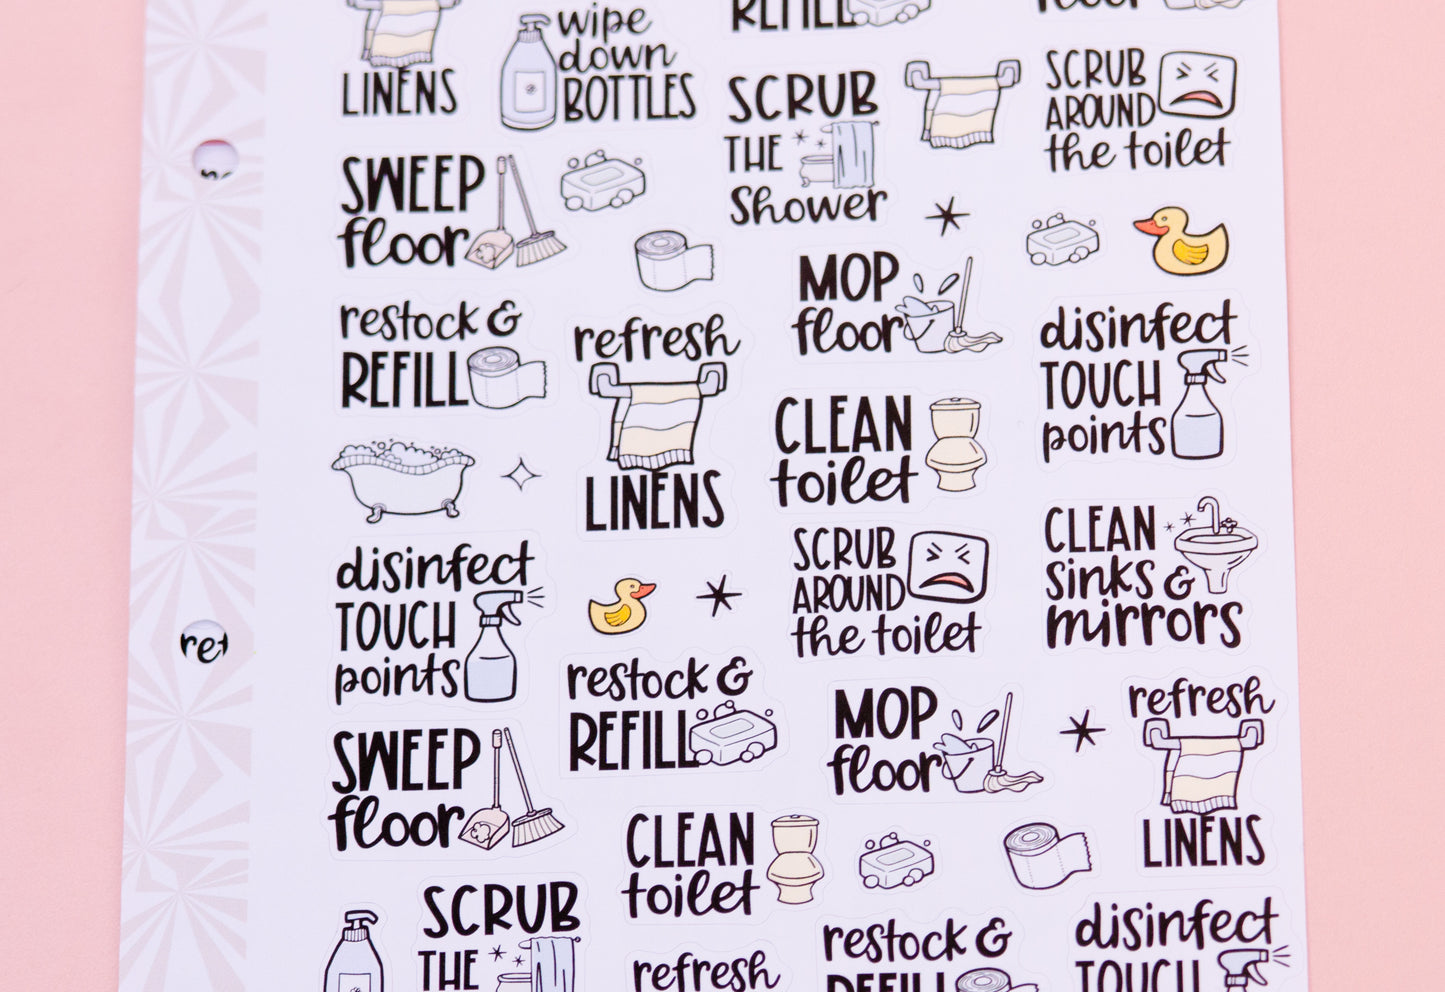 LINENS
wipe
down
BOTTLES
REFILL
floor
SCRUB
THE
Shower
SCRUB
AROUND
the toilet
SWEEP
floor
MOP
floor
restock &
REFILL
refresh
LINENS
disinfect
TOUCH
points
CLEAN
toilet
disinfect
TOUCH
points
SCRUB
AROUND
the toilet
CLEAN
sinks &
mirrors
ref
restock &
REFILL
MOP
floor
refresh
LINENS
SWEEP
floor
CLEAN
toilet
SCRUB
THE
refresh
restock &
REFILL
disinfect
TOUCH